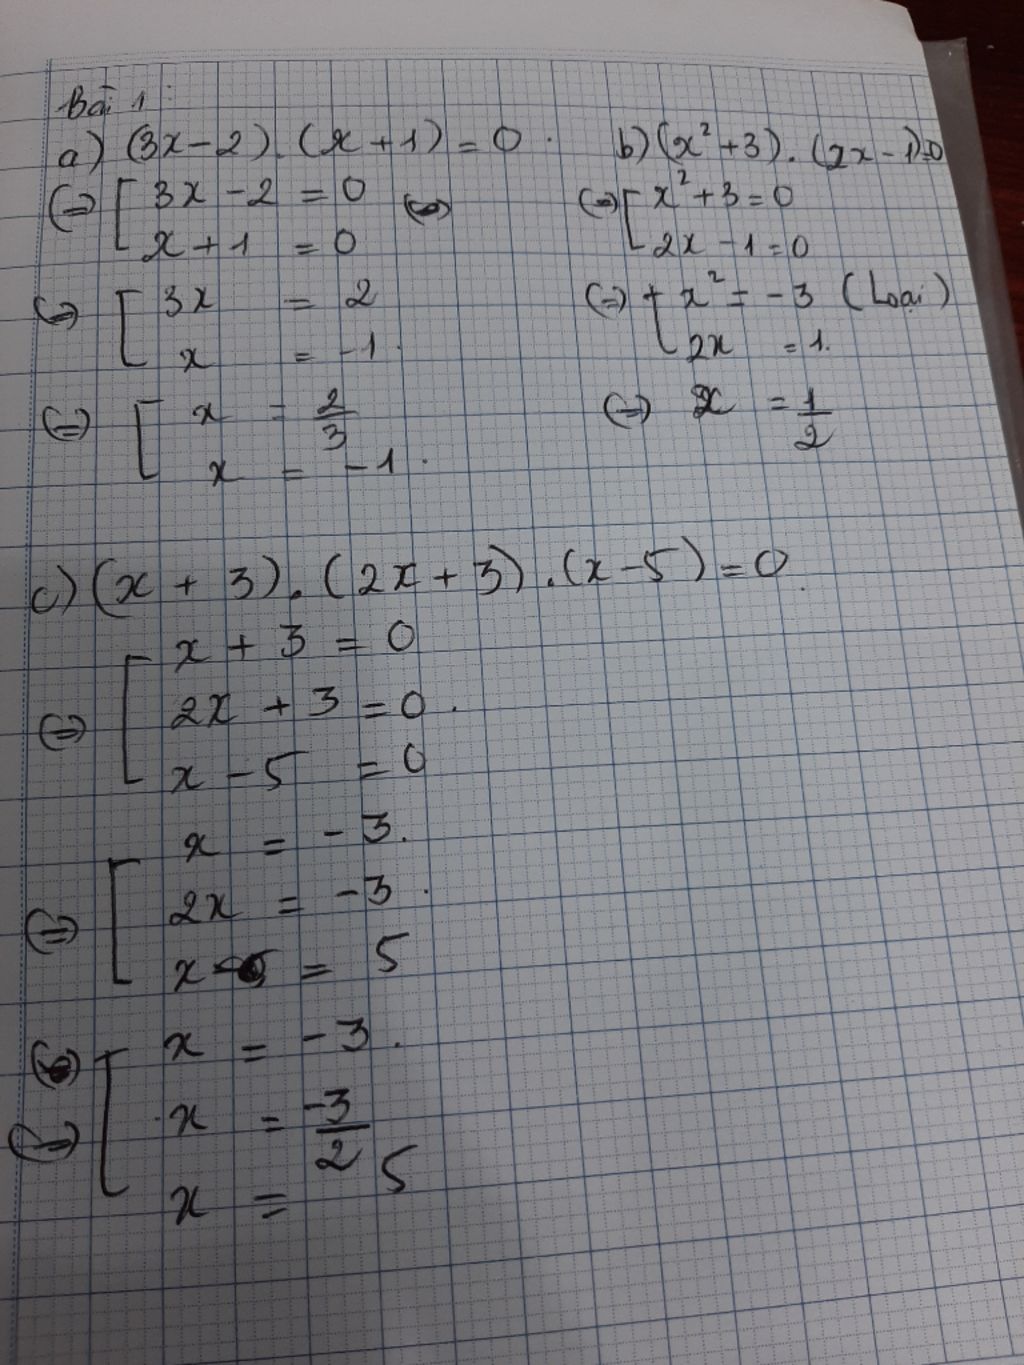 Bài 1:
a) (3x-2).(x+1) = 0.
(=) [ 3x - 2 = 0
x + 1 = 0
(=) [ 3x = 2
x = -1.
(=) [ x = 2/3
x = -1.
b) (x² + 3).(2x - 1)=0
(=) [ x² + 3 = 0
2x - 1 = 0
(=) [ x² = -3 (Loại)
2x = 1.
(=) x = 1/2
c) (x + 3).(2x + 3).(x - 5) = 0.
(=) [ x + 3 = 0
2x + 3 = 0.
x - 5 = 0
(=) [ x = -3.
2x = -3.
x = 5
(=) [ x = -3.
x = -3/2
x = 5